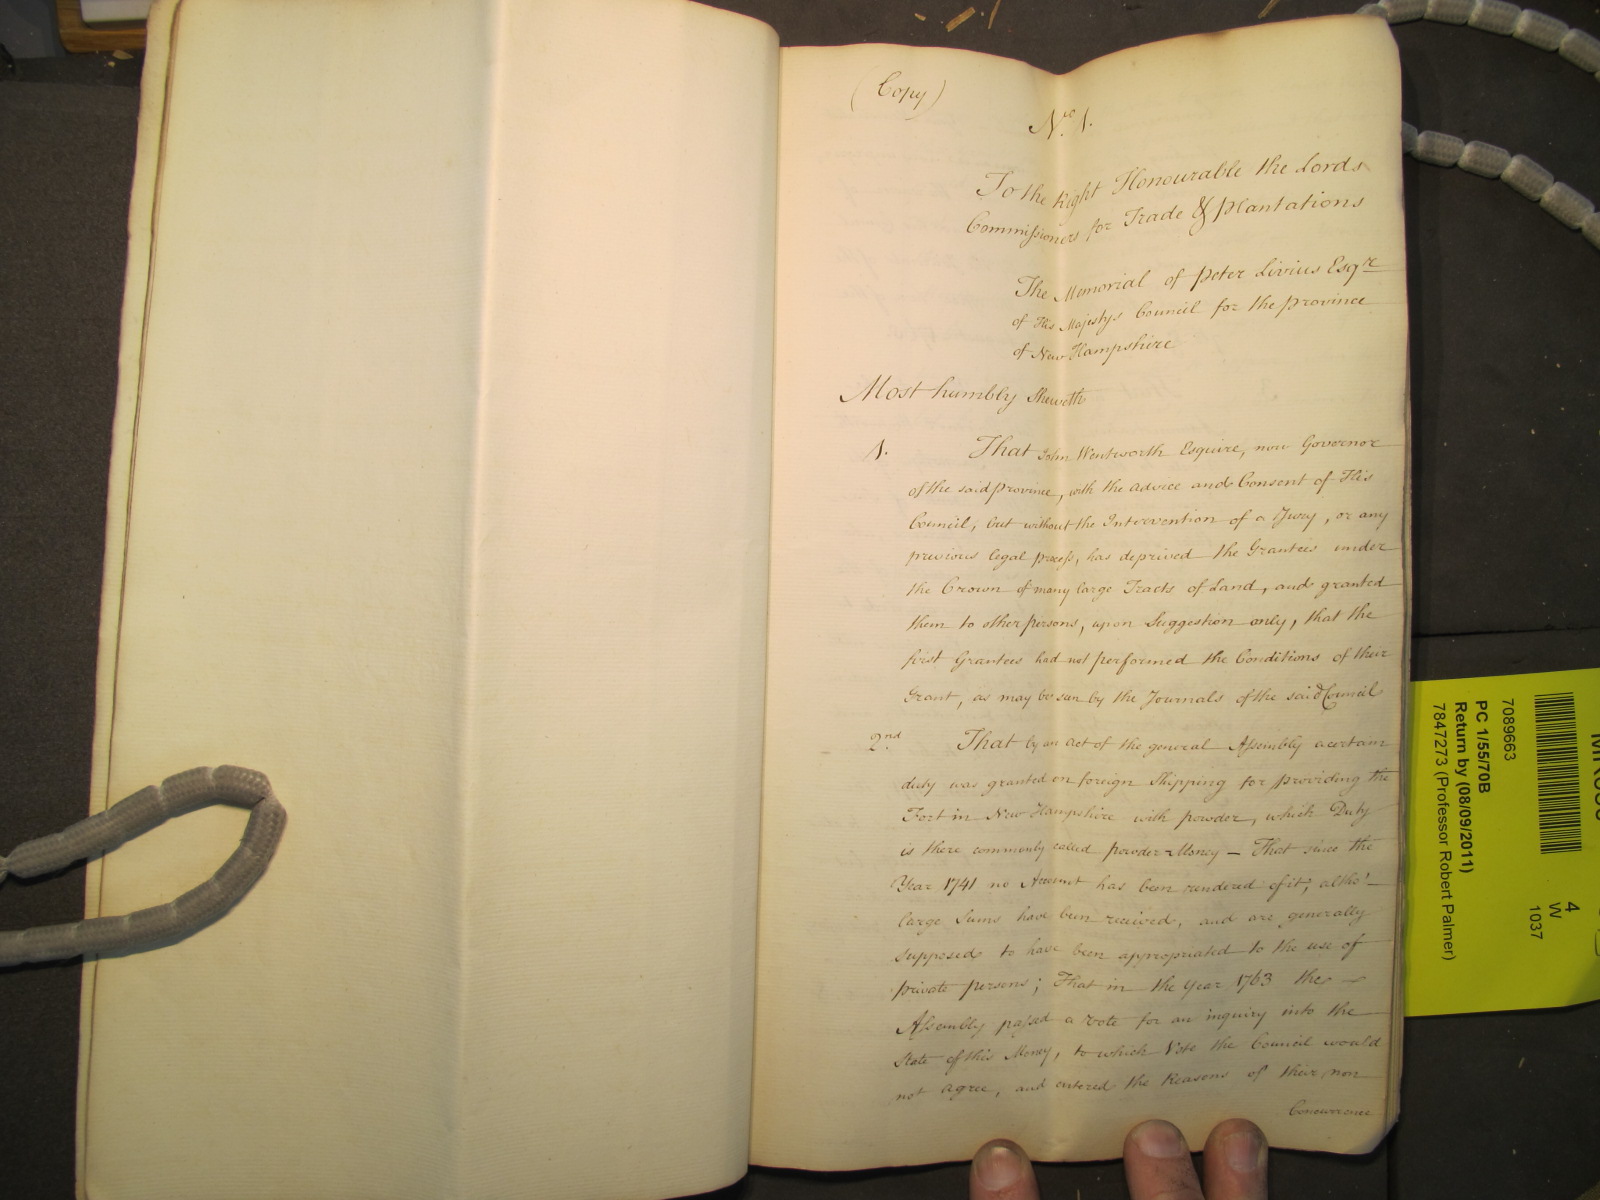 (Copy)
No. 1.
To the Right Honourable the Lords
Commissioners for Trade & Plantations
The Memorial of Peter Livius Esqr
of His Majestys Council for the Province
of New Hampshire
Most humbly Sheweth
1. That John Wentworth Esquire, now Governor
of the said Province, with the Advice and Consent of His
Council, but without the Intervention of a Jury, or any
previous legal process, has deprived the Grantees under
the Crown of many large Tracts of Land, and granted
them to other persons, upon Suggestion only, that the
first Grantees had not performed the Conditions of their
Grant, as may be seen by the Journals of the said Council
2nd. That by an Act of the general Assembly a certain
duty was granted on foreign Shipping for providing the
Fort in New Hampshire with powder, which Duty
is there commonly called powder Money — That since the
Year 1741 no Account has been rendered of it, altho'
large Sums have been received, and are generally
supposed to have been appropriated to the use of
private persons; That in the Year 1763 the
Assembly passed a Vote for an inquiry into the
State of this Money, to which Vote the Council would
not agree, and entered the Reasons of their non
Concurrence
4
W
1037
7089663
PC 1/55/70B
Return by (08/09/2011)
7847273 (Professor Robert Palmer)